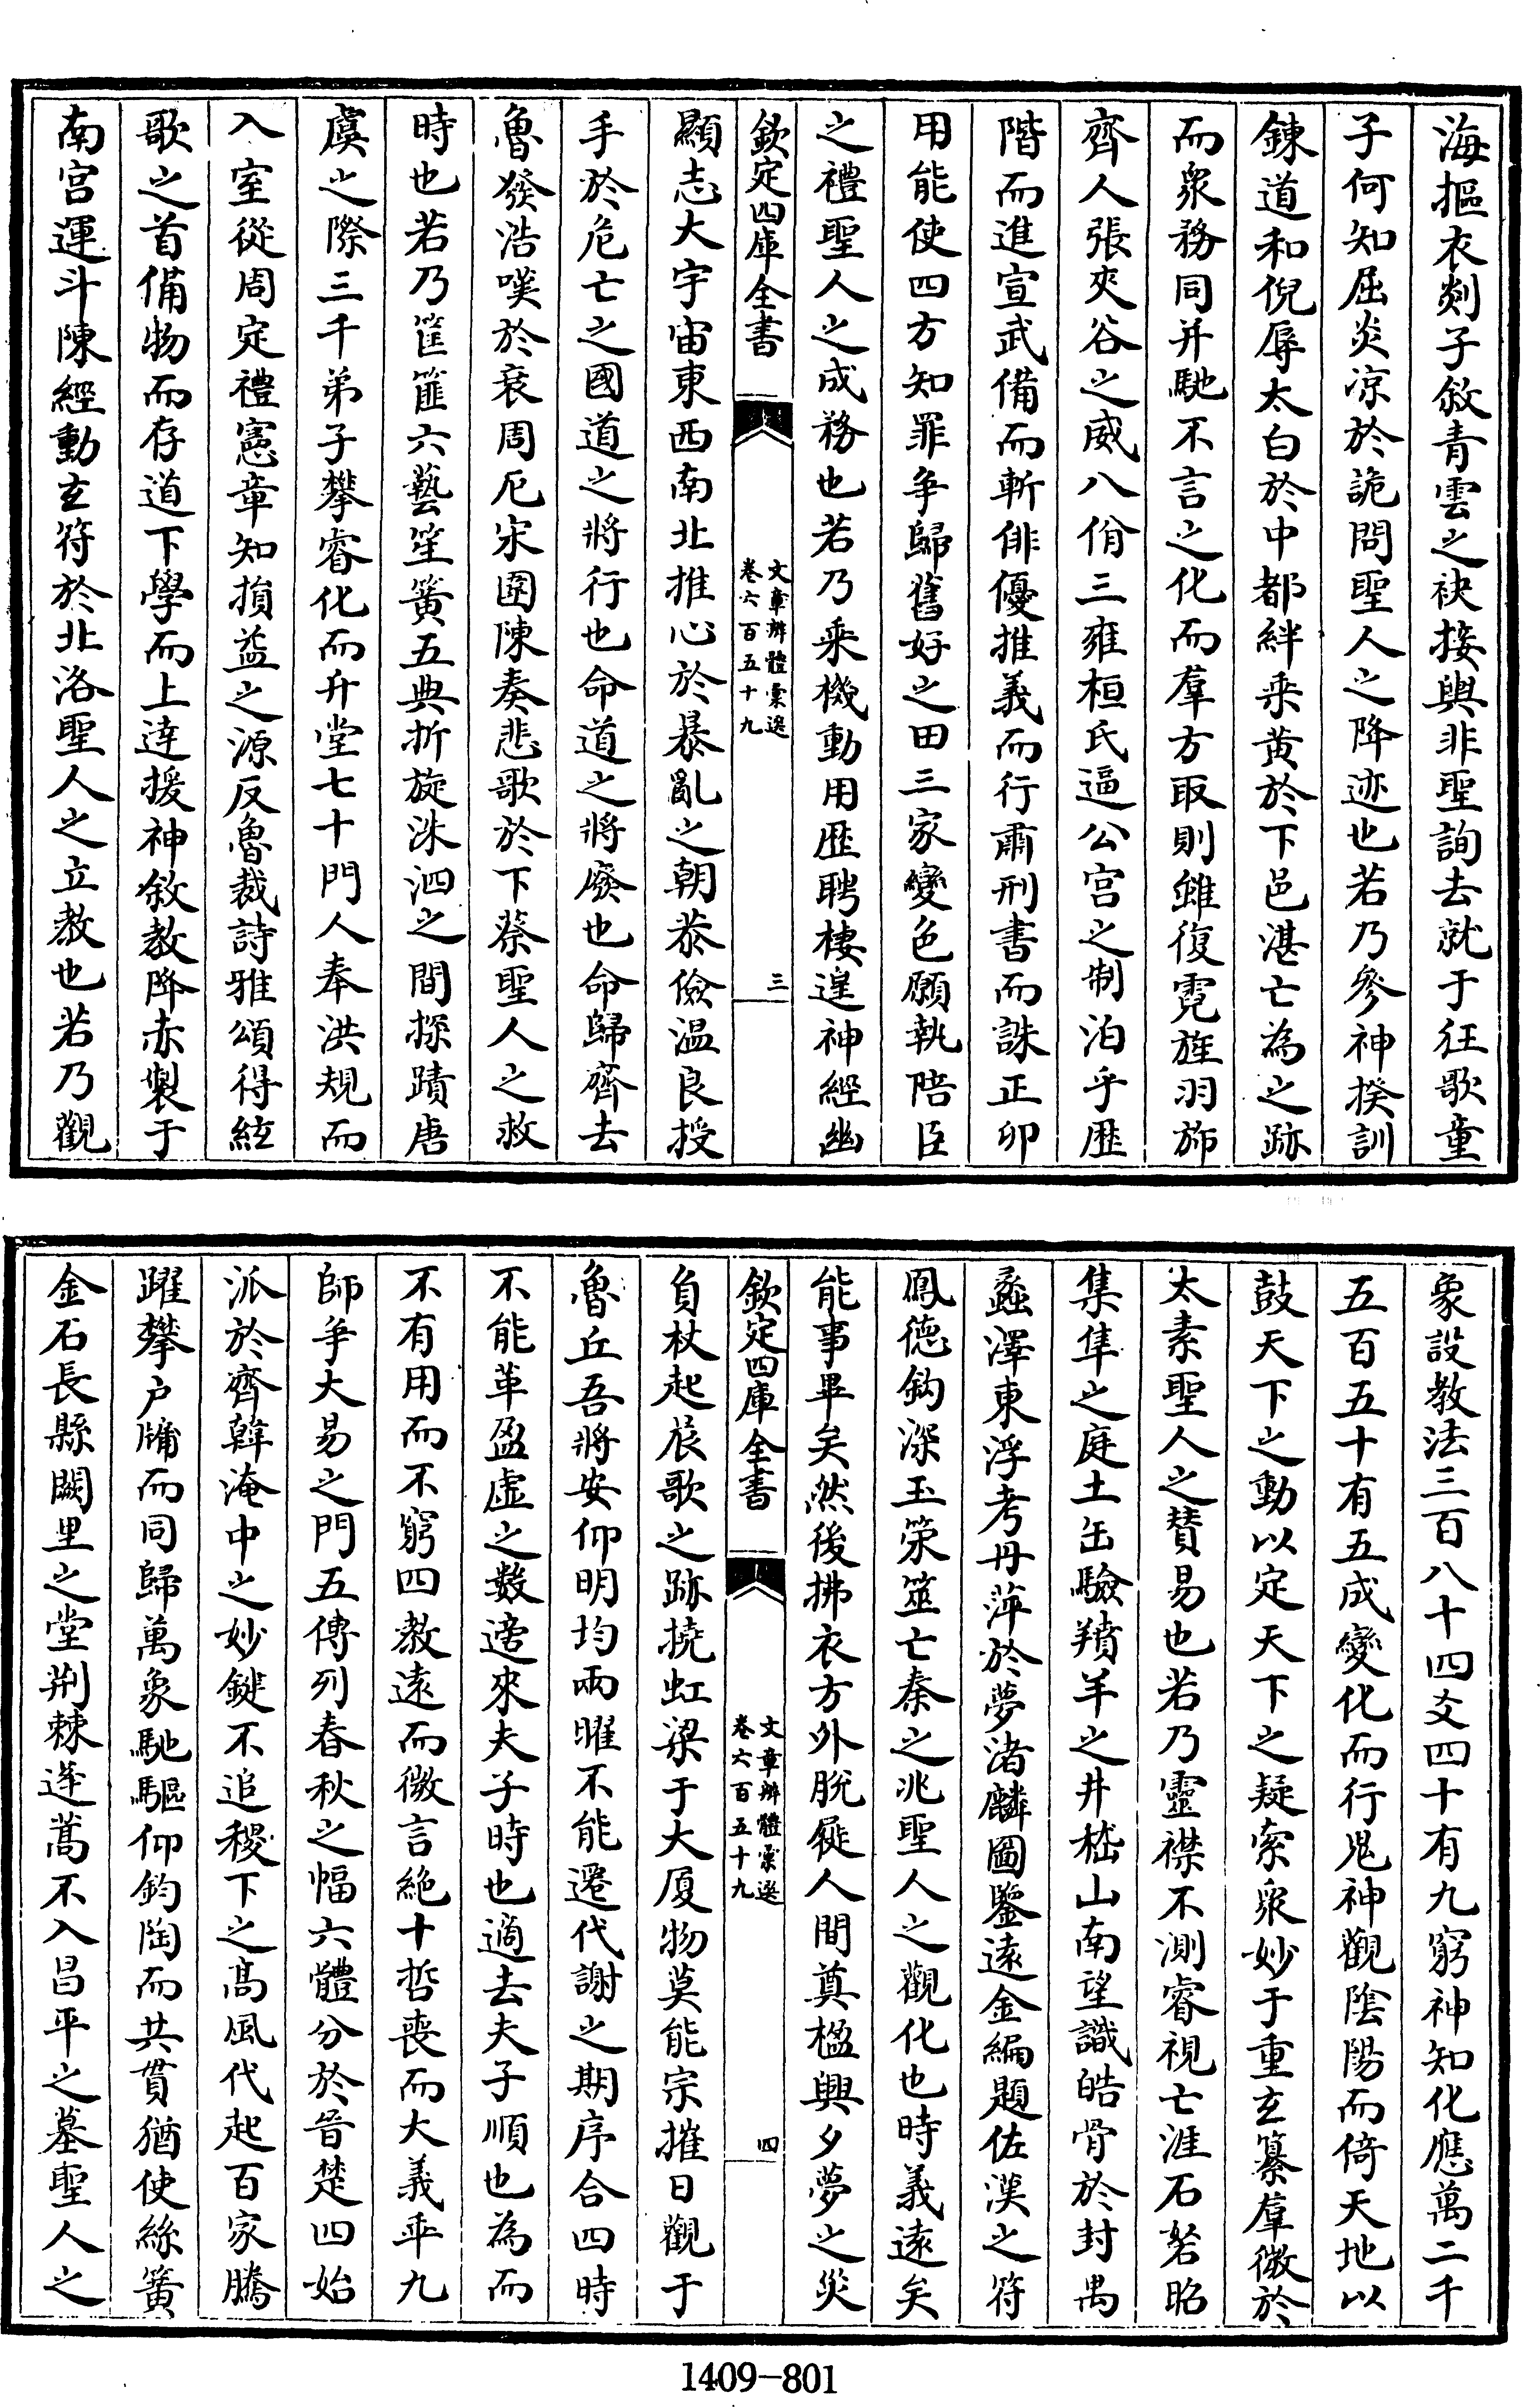 海摳衣剡子敘青雲之袂接輿非聖詢去就于狂歌童
子何知屈炎凉於詭問聖人之降迹也若乃參神揆訓
錬道和倪辱太白於中都絆乘黄於下邑湛亡為之跡
而衆務同并馳不言之化而羣方取則雖復霓旌羽斾
齊人張夾谷之威八佾三雍桓氏逼公宫之制泊乎歴
階而進宣武備而斬俳優推義而行肅刑書而誅正卯
用能使四方知罪争歸舊好之田三家變色願執陪臣
之禮聖人之成務也若乃乘機動用歴聘棲遑神經幽
欽定四庫全書
文章辨體彚選
卷六百五十九
三
顯志大宇宙東西南北推心於暴亂之朝恭儉温良授
手於危亡之國道之將行也命道之將廢也命歸齊去
魯發浩嘆於衰周厄宋圍陳奏悲歌於下蔡聖人之救
時也若乃筐篚六藝笙簧五典折旋洙泗之間探賾唐
虞之際三千弟子攀睿化而升堂七十門人奉洪規而
入室從周定禮憲章知損益之源反魯裁詩雅頌得絃
歌之首備物而存道下學而上逹援神敘教降赤製于
南宫運斗陳經動玄符於北洛聖人之立教也若乃觀
象設教法三百八十四爻四十有九窮神知化應萬二千
五百五十有五成變化而行鬼神觀隂陽而倚天地以
鼓天下之動以定天下之疑索衆妙于重玄纂羣微於
太素聖人之賛易也若乃靈襟不測睿視亡涯石砮昭
集隼之庭土缶驗羵羊之井嵇山南望識皓骨於封禺
蠡澤東浮考丹萍於夢渚麟圖鑒遠金編題佐漢之符
鳳德鈎深玉策筮亡秦之兆聖人之觀化也時義遠矣
能事畢矣然後拂衣方外脱屣人間奠楹興夕夢之災
欽定四庫全書
文章辨體彚選
卷六百五十九
四
負杖起晨歌之跡撓虹梁于大厦物莫能宗摧日觀于
魯丘吾將安仰明均兩曜不能遷代謝之期序合四時
不能革盈虚之数適來夫子時也適去夫子順也為而
不有用而不窮四教遠而微言絶十哲喪而大義乖九
師争大易之門五傳列春秋之幅六體分於晉楚四始
派於齊韓淹中之妙鍵不追稷下之髙風代起百家騰
躍攀户牖而同歸萬象馳驅仰鈞陶而共貫猶使絲簧
金石長縣闕里之堂荆棘蓬蒿不入昌平之墓聖人之
1409-801